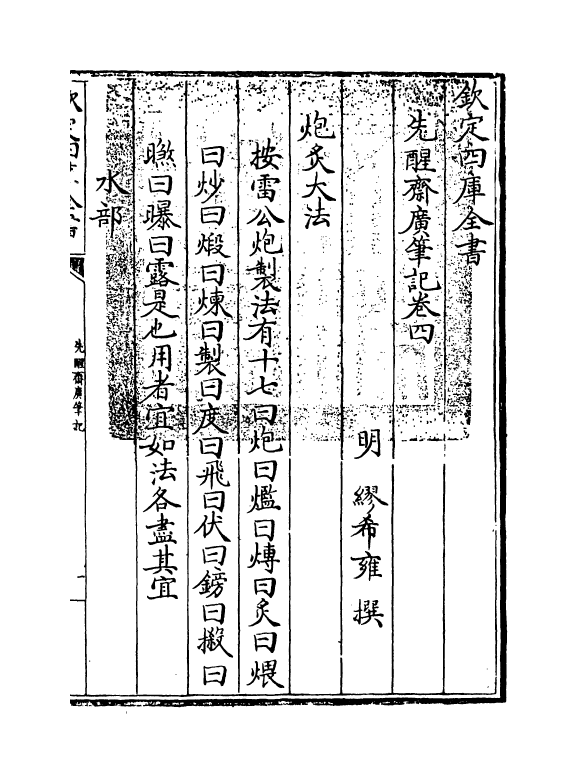 欽定四庫全書
先醒齋廣筆記卷四
明 繆希雍 撰
炮炙大法
按雷公炮製法有十七曰炮曰爁曰煿曰炙曰煨
曰炒曰煅曰煉曰製曰度曰飛曰伏曰鎊曰摋曰
㬠曰曝曰露是也用者宜如法各盡其宜
水部
先醒齋廣筆記